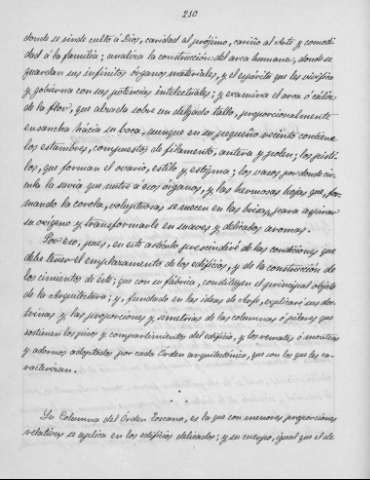 210
donde se rinde culto á Dios, caridad al prójimo, cariño al Arte y comodi-
dad á la familia; analiza la construcción del arca humana, donde se
guardan sus infinitos órganos materiales, y el espíritu que les vivifica
y gobierna con sus potencias intelectuales; y examina el arca ó cáliz
de la flor, que abierta sobre un delgado tallo, proporcionalmente
ensancha hacia su boca, aunque en su pequeño recinto contiene
los estambres, compuestos de filamento, antera y polen; los pisti-
los, que forman el ovario, estilo y estigma; los vasos por donde cir-
cula la savia que nutre á esos órganos, y las hermosas hojas que, for-
mando la corola, voluptuosas se mecen en las brisas, para aspirar
su oxígeno y transformarle en suaves y delicados aromas.
Por eso, pues, en este asunto prescindiré de las condiciones que
debe tener el emplazamiento de los edificios, y de la construcción de
los cimientos de éste; que con su fábrica, constituyen el principal objeto
de la Arquitectura; y, fundado en las ideas de Arfe, explicaré sus doc-
trinas y las proporciones y simetrías de las columnas ó pilares que
sostienen los pisos y compartimientos del edificio, y los remates ó molduras
y adornos adoptados por cada Orden arquitectónico, que con los que les ca-
racterizan.
La Columna del Orden Toscano, es la que con menores proporciones
relativas se aplica en los edificios delicados; y su cuerpo, igual que el de